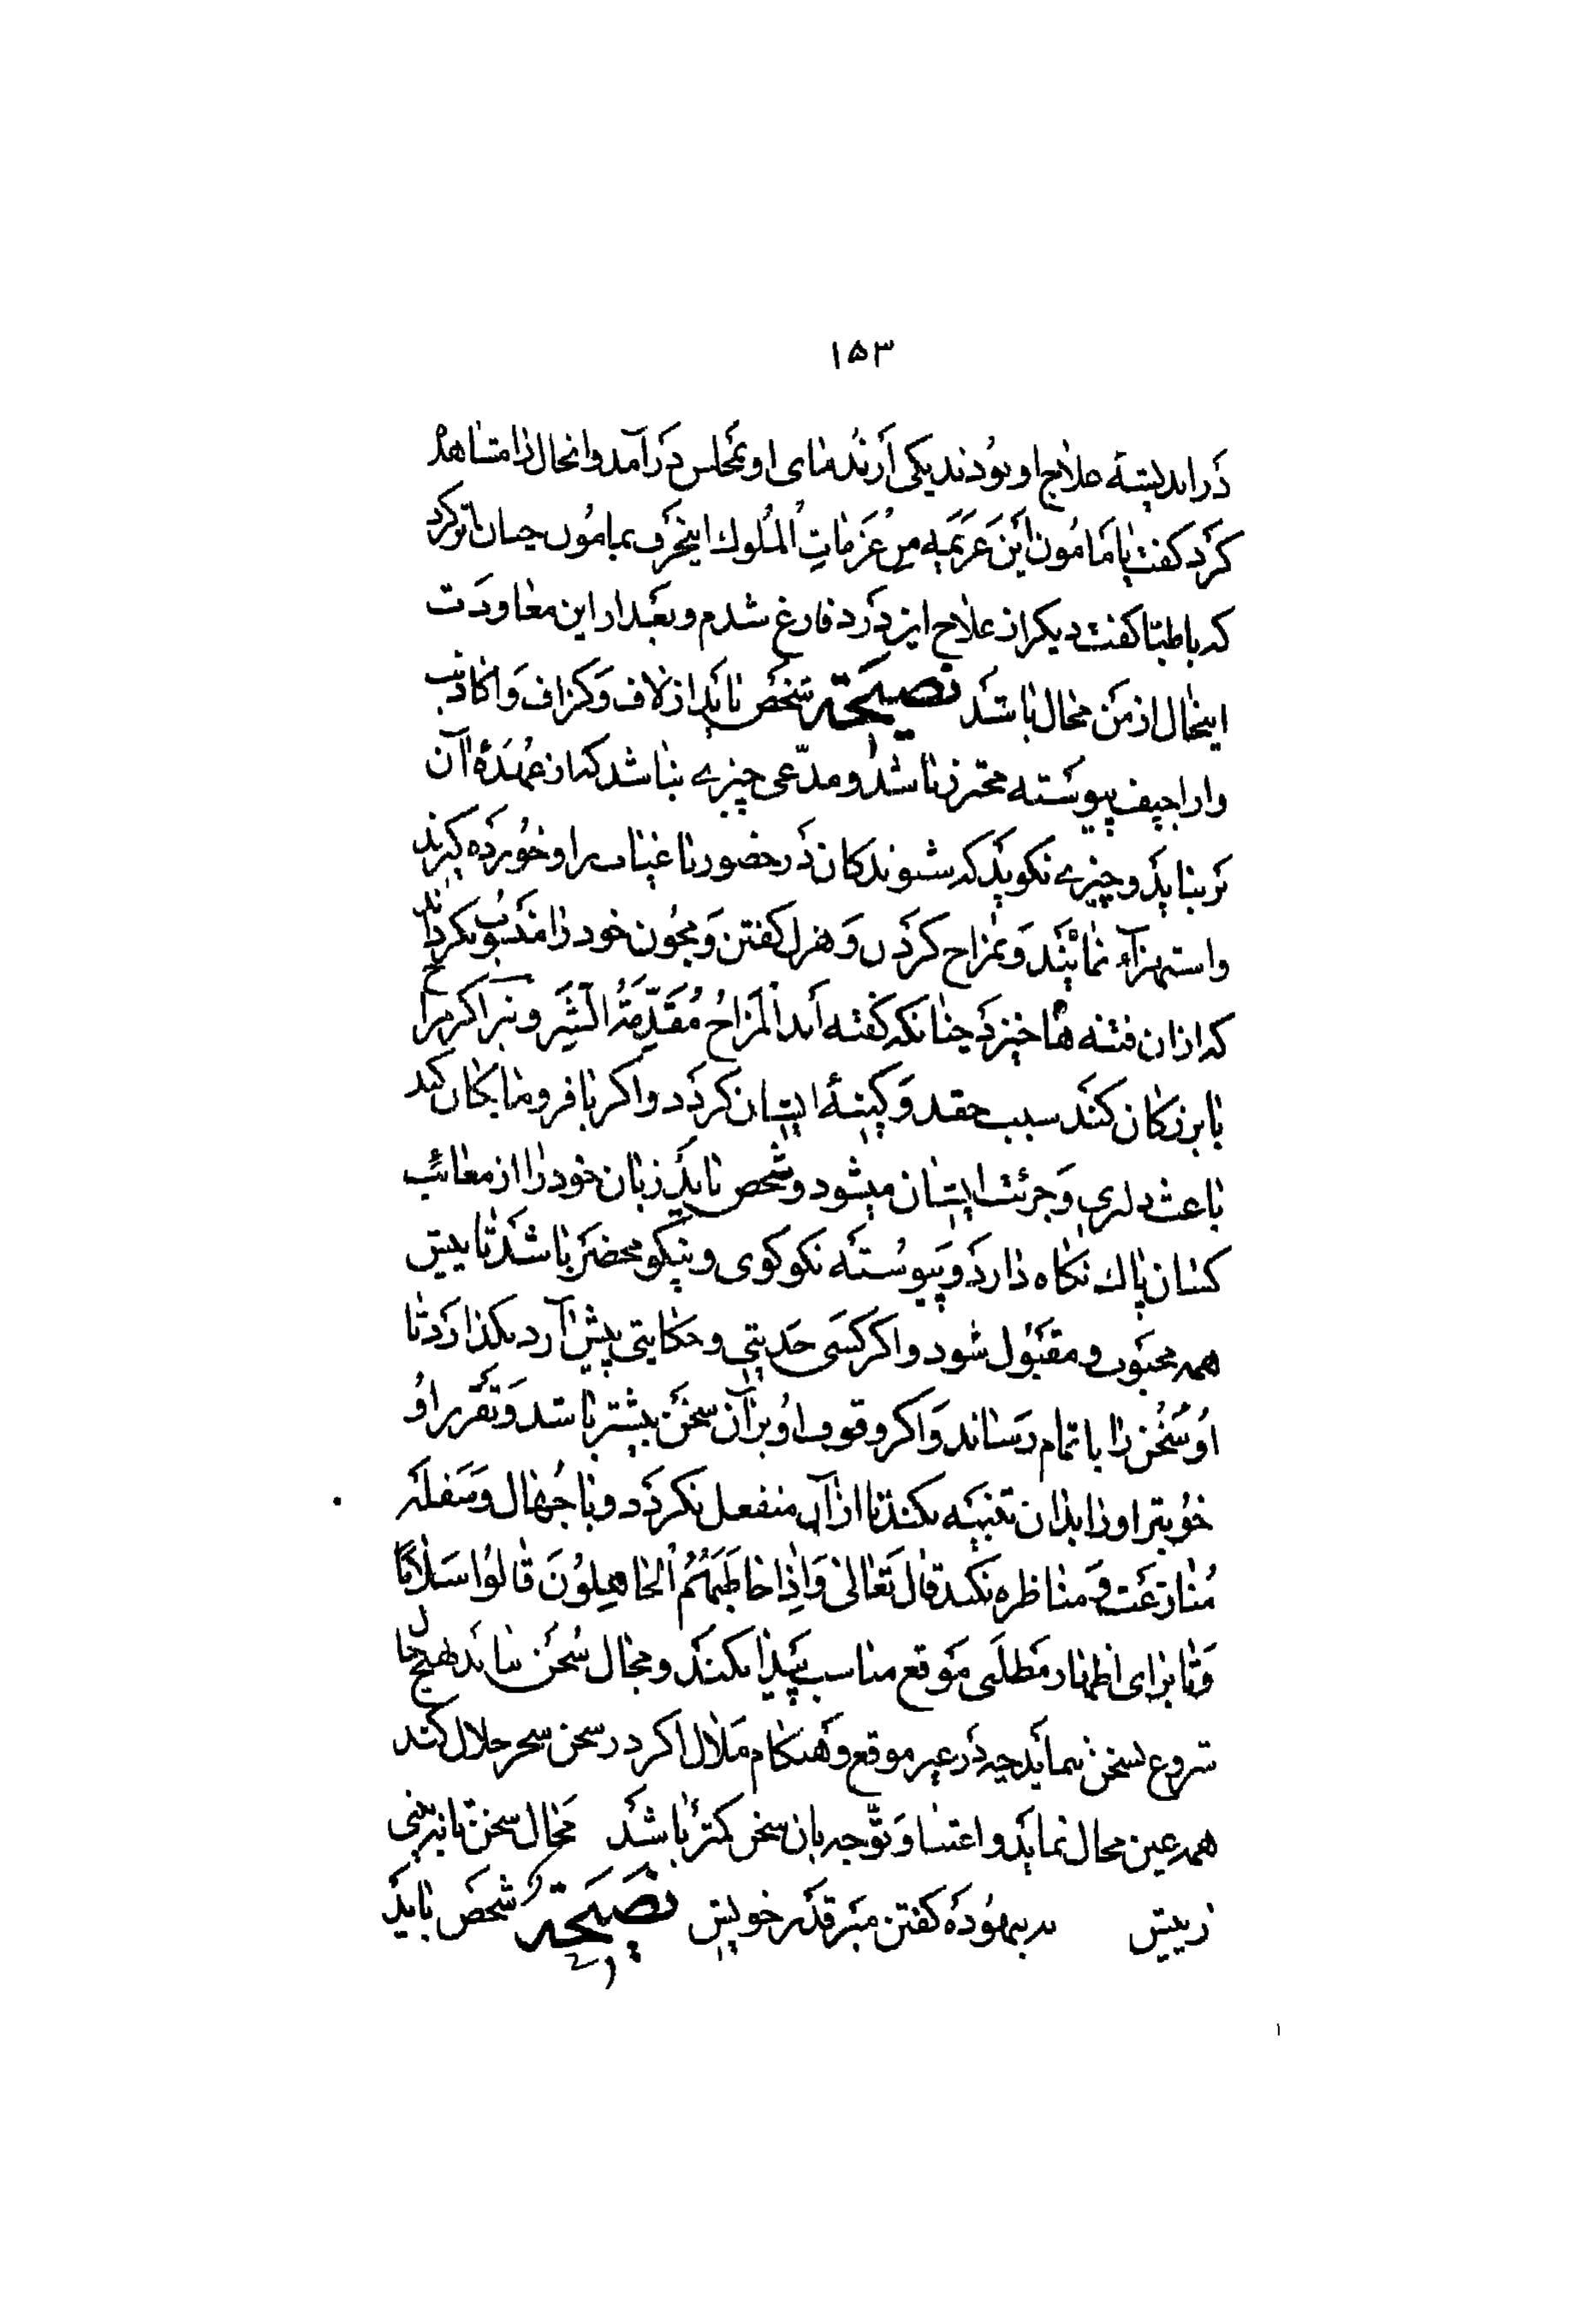 ۱۵۳
در اندیشهٔ علاج او بودند یکی از ندمای او بمجلس درآمد و انحال را مشاهده
کرد گفت یا مامون این عزیمه من عزمات الملوک اینحرف بمامون چنان اثر کرد
که باطبا گفت دیگر از علاج این درد فارغ شدم و بعد از این معاودت
اینحال از من محال باشد نصیحة شخص باید از لاف و کزاف و اکاذیب
و اراجیف پیوسته محترز باشد و مدّعی چیزی نباشد که از عهدهٔ آن
بر نیاید و چیزی نکوید که شنوندکان در حضور یا غیاب بر او خورده کیرند
و استهزاء نمایند و بمزاح کردن و هزل کفتن و مجون خود را منسوب نکرداند
که از ان فتنه ها خیزد چنانکه کفته اند المزاح مقدّمة الشر و نیز اکر مزاح
با بزرکان کنند سبب حقد و کینهٔ ایشان کردد و اکر با فرومایکان کند
باعث دلری و جرئت ایشان میشود و شخص باید زبان خود را از معائب
کسان پاک نکاه دارد و پیوسته نکو کوی و نیکو محضر باشد تا پیش
همه محبوب و مقبول شود و اکر کسی حدیثی و حکایتی پیش آرد بکذارد تا
او سخن را باتمام رساند و اکر وقوف او بر آن سخن بیشتر باشد و تقریر او
خوبتر او را بدان تنبیه نکند تا از آن منفعل نکردد و با جُهال و سفله
مُنازعت و مناظره نکند قال تَعالی وَاِذا خاطَبَهُمُ الجاهِلونَ قالوُا سَلاماً
و تا برای اظهار مطلبی موقع مناسب پیدا نکند و مجال سخن نیابد هیچ جا
شروع بسخن ننماید چه در غیر موقع و هنکام ملال اکر در سخن سحر حلال کند
همه عین محال نماید و اعتنا و توّجه بان سخن کمتر باشد مجال سخن تا نبینی
ز پیش به بیهوده کفتن مبر قدر خویش نصیحة شخص باید
۱